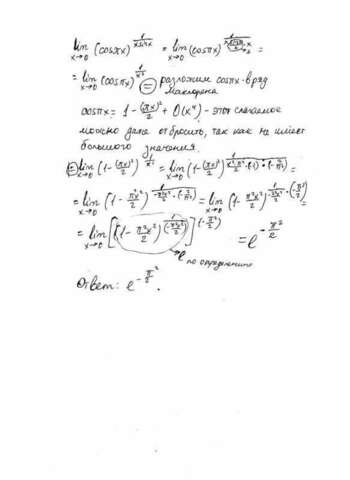 lim x→0 (cosπx)^(1/(x sinx)) = lim x→0 (cosπx) =
= lim x→0 (cosπx)^(1/x²) = разложим cosπx в ряд
Маклорена
cosπx = 1 - (πx)²/2 + O(x⁴) - это слагаемое
можно даже отбросить, так как не имеет
большого значения.
= lim x→0 (1-(πx)²/2)^(1/x²) = lim x→0 (1-(πx)²/2) =
= lim x→0 (1-π²x²/2) = lim x→0 (1-π²x²/2) =
= lim x→0 [(1-π²x²/2)^(1/(-π²x²/2))]^(-π²/2) = e^(-π²/2)
e по определению
Ответ: e^(-π²/2).